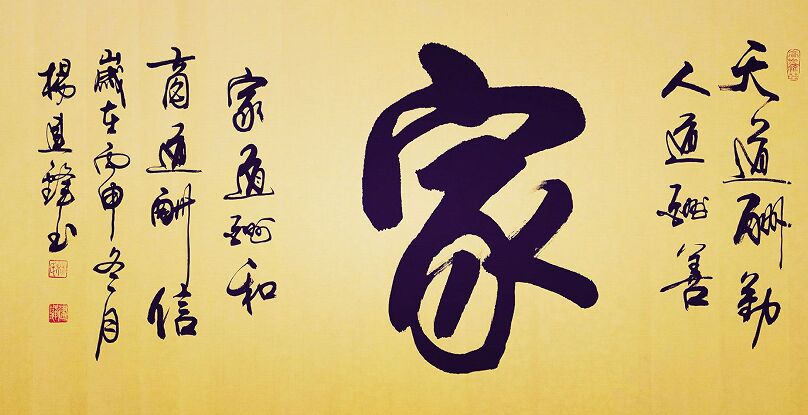 天道酬勤
人道酬善
家
家道酬和
商道酬信
歲在丙申冬月
楊 鋒书